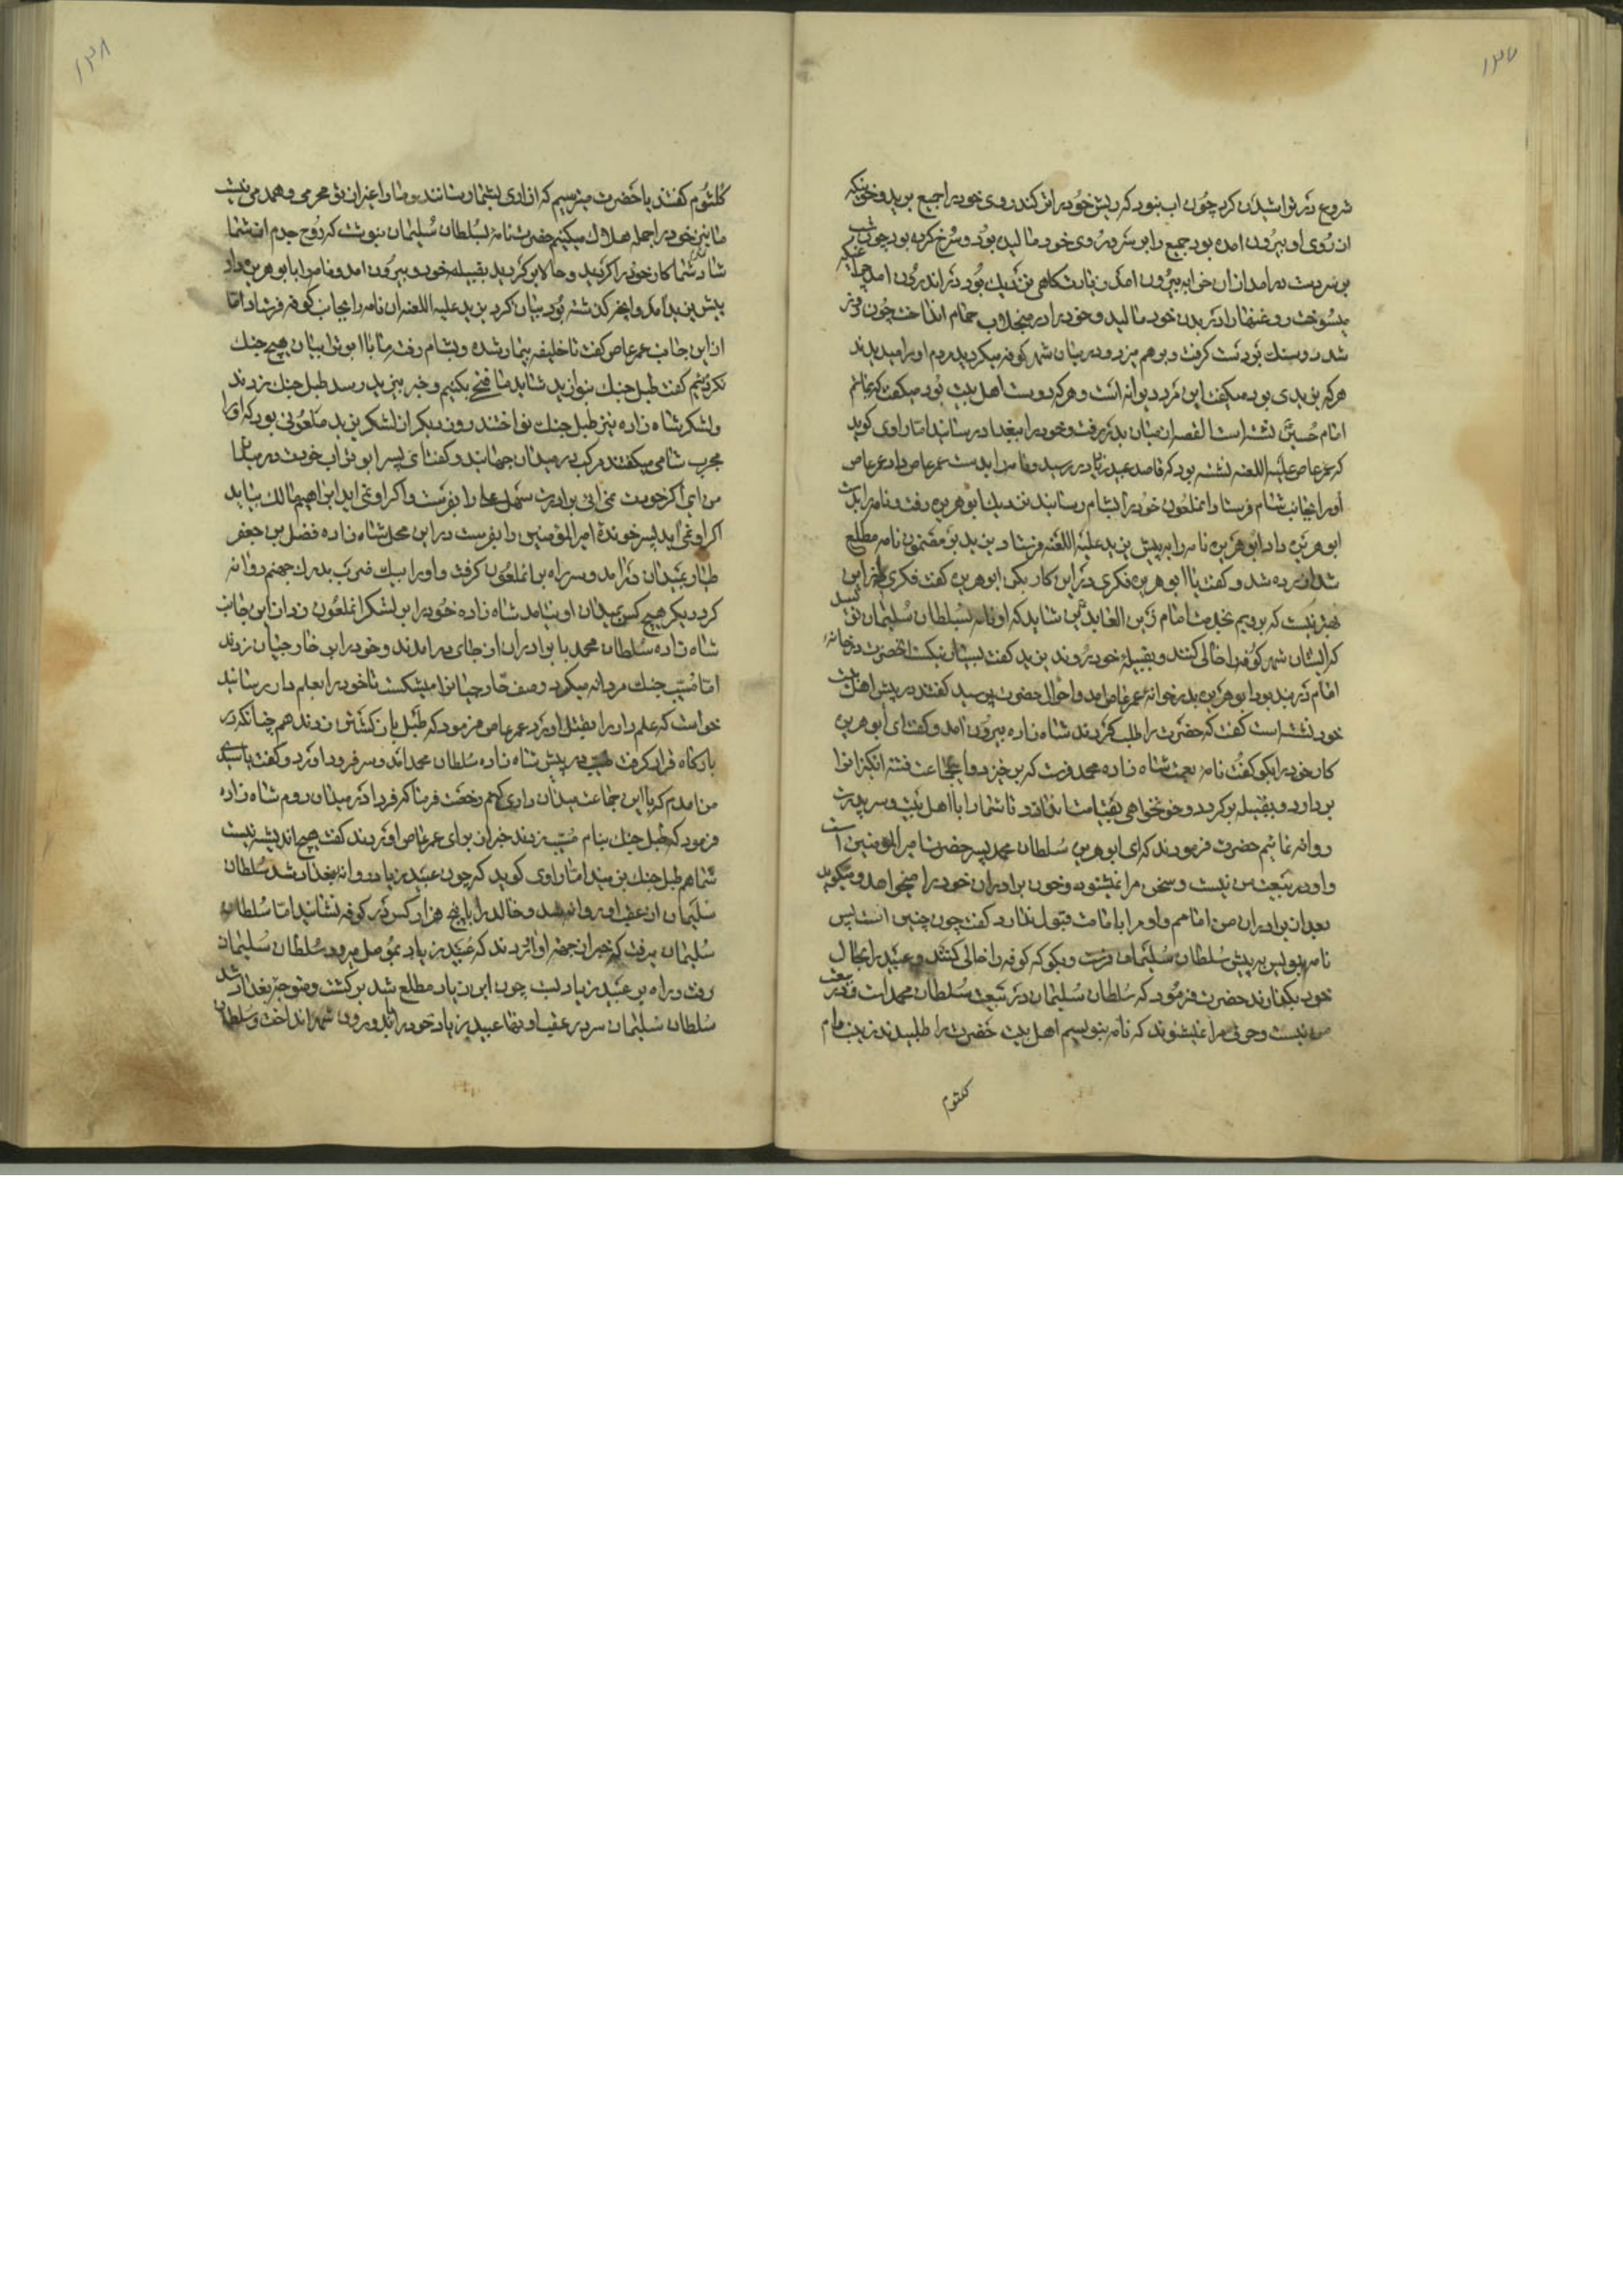 ۱۳۷
شروع در تراشیدن کرد چون اب نبود که ریش خود را تر کند روی خود را جمیع برید و خونیکه
از روی او بیرون امده بود جمیع را بر سر و روی خود مالیده بود و سرخ کرده بود چون شب
بر سر دست در امد از ان خرابه بیرون امد زیارتکاهی نزدیک بود در اندرون امد
میسوخت روغنها را در بدن خود مالید و خود را در منجلاب حمام انداخت چون روز
شد دو سنک بر دست کرفت و بر هم میزد و در میان شهر کوفه میکردید مردم او را میدیدند
هر که یزیدی بود میکفت این مرد دیوانه است و هر که دوست اهل بیت بود میکفت که بماتم
امام حسین نشسته است القصه از میان بدر رفت و خود را ببغداد رسانید اما راوی کوید
که عمر عاص علیه اللعنه نشسته بود که قاصد عبید زیاد در رسید و نامه را بدست عمر عاص داد عمر عاص
او را بجانب شام فرستاد انملعون خود را بشام رسانید نزدیک ابو هریره رفت و نامه را بدست
ابو هریره داد ابو هریره نامه را به پیش یزید علیه اللعنه فرستاد یزید بر مضمون نامه مطلع
شد ازرده شد و کفت یا ابو هریره فکری در این کار بکن ابو هریره کفت فکری از این
بهتر نیست که برویم بخدمت امام زین العابدین شاید که او نامه بسلطان سلیمان نویسد
که ایشان شهر کوفه را خالی کنند و بقبیله خود روند یزید کفت بسیار نیکست انحضرت در خانه
امام در بند بود ابو هریره بدر خوانه عمر عاص امد و احوال حضرت پرسید کفتند در پیش اهل بیت
خود نشسته است کفت که حضرت را طلب کردند شاه زاده بیرون امد و کفت ای ابو هریره
کار خود را بکو کفت نامه بعمت شاه زاده محمد فرست که بر خیزد و ان جماعت فتنه انکیز انرا
بر دارد و بقبیله بر کردد و خونخواهی بقیامت بماند و تا شما را با اهل بیت و سر پدرت
روانه نمائیم حضرت فرمودند که ای ابو هریره سلطان محمد پسر حضرت امیر المومنین است
و او در بیعت من نیست و سخن مرا نمیشنود و خون برادران خود را میخواهد و میکوید
بعد از برادران من امامم و او مرا بامامت قبول ندارد کفت چون چنین است پس
نامه بنویس به پیش سلطان سلیمان فرست و بکو که کوفه را خالی کنند و عبید را بحال
خود بکذارند حضرت فرمود که سلطان سلیمان در بیعت سلطان محمد است و در بیعت
من نیست و حرف مرا نمیشنوند که نامه بنویسم اهل بیت حضرت را طلبیدند زینب و ام
کلثوم
۱۳۸
کلثوم کفتند یا حضرت میترسیم که ازاری بشما رسانند و ما را غیر از تو محرمی و همدمی نیست
ما نیز خود را جمله هلاک میکنیم حضرت نامه بسلطان سلیمان نوشت که روح جدم از شما
شاد شما کار خود را کردید و حالا بر کردید بقبیله خود و بیرون امد و نامه را با ابو هریره داد
پیش یزید امد و انچه کذشته بود بیان کرد یزید علیه اللعنه ان نامه را بجانب کوفه فرستاد اما
از این جانب عمر عاص کفت تا خلیفه بیمار شده و بشام رفت ما با ابو ترابیان هیچ جنک
نکردیم کفت طبل جنک بنوازید شاید ما فتحی بکنیم و خبر بیزید رسد طبل جنک زدند
و لشکر شاه زاده نیز طبل جنک نواختند روز دیکر از لشکر یزید ملعونی بود که او را
مجرب شامی میکفتند مرکب در میدان جهانید و کفت ای پسر ابو تراب خودت در میدان
من ای اکر خودت نمی ائی برادرت سهل علی را بفرست و اکر او نمی اید ابراهیم مالک بیاید
اکر او نمی اید پسر خوندهٔ امیر المؤمنین را بفرست در این محل شاه زاده فضل بن جعفر
طیار بمیدان در امد و سر راه بر انملعون کرفت و او را بیک ضرب بدرک جهنم روانه
کرد دیکر هیچ کس بمیدان او نیامد شاه زاده خود را بر لشکر انملعون زد از این جانب
شاه زاده سلطان محمد با برادران از جای در امدند و خود را بر خارجیان زدند
اما مسیب جنک مردانه میکرد و صف خارجیانرا میشکست تا خود را بعلم دار رسانید
خواست که علم دار را بقتل اورد عمر عاص فرمود که طبل باز کشتن زدند هم چنانکه در
بارکاه قرار کرفت مسیب در پیش شاه زاده سلطان محمد امد و سر فرود اورد و کفت یا سید
من امدم که با این جماعت میدان داری کنم رخصت فرما که فردا در میدان روم شاه زاده
فرمود که طبل جنک بنام مسیب زدند خبر از برای عمر عاص اوردند کفت هیچ اندیشه نیست
شما هم طبل جنک بزنید اما راوی کوید که چون عبید زیاد روانه بغداد شد سلطان
سلیمان از عقب او روانه شد و خالد را با پنج هزار کس در کوفه نشانید اما سلطان
سلیمان میرفت که خبر از جهة او اوردند که عبید زیاد بموصل میرود سلطان سلیمان
رفت و راه بر عبید زیاد بست چون ابن زیاد مطلع شد بر کشت و متوجه بغداد شد
سلطان سلیمان سر در عقب او نهاد عبید زیاد خود را باندرون شهر انداخت و سلطان